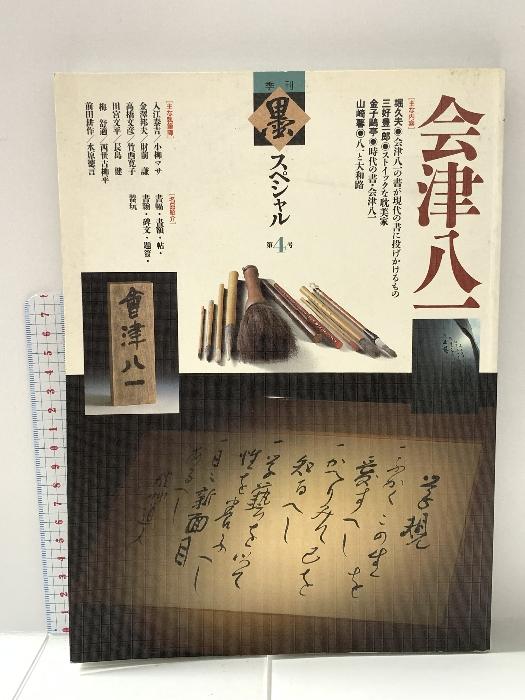 会津八一
[主な内容]
堀久夫●会津八一の書が現代の書に投げかけるもの
三好豊一郎●ストイックな耽美家
金子鷗亭●時代の書・会津八一
山崎馨●八一と大和路
季刊
墨
スペシャル
第4号
[主な執筆者]
入江泰吉／小柳マサ
金澤邦夫／財前 謙
高橋文彦／竹西寛子
田宮文平／長島 健
梅 舒適／西世古柳平
前田耕作／水原徳言
[名品紹介]
書幅・書額・帖・
書簡・碑文・題簽・
會津八一
学規
一 ふかくこの生を
愛すへし
一 かへりみて己を
知るへし
一 学藝を以て
性を養ふへし
一 日々新面目
あるへし